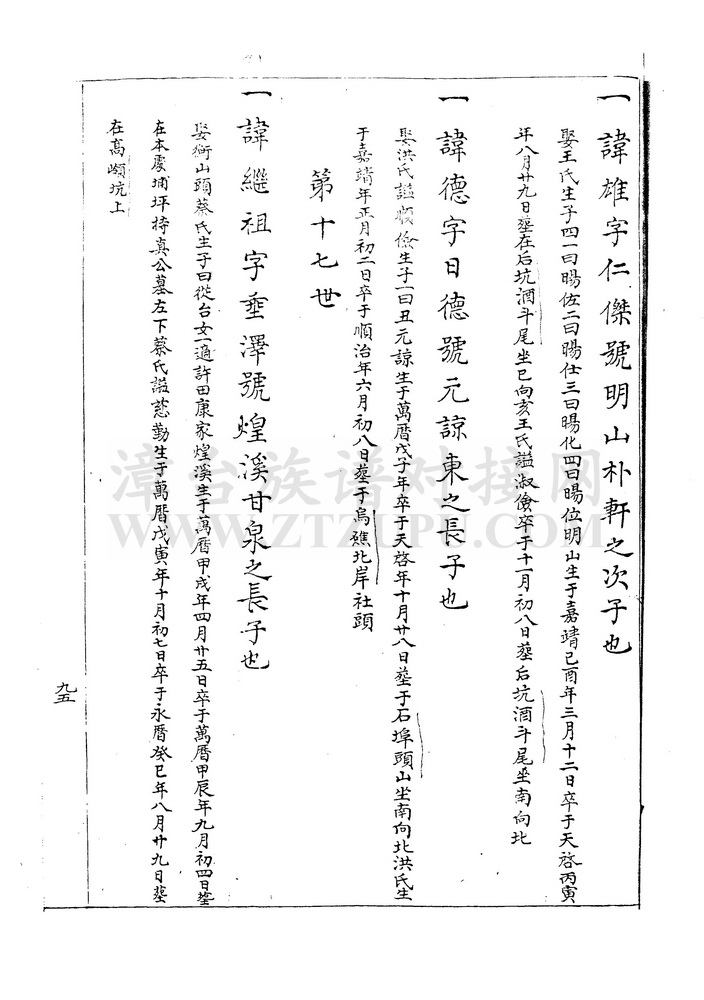 一諱雄字仁傑號明山朴軒之次子也
娶王氏生子四一曰暘佐二曰暘仕三曰暘化四曰暘位明山生于嘉靖己酉年三月十二日卒于天啓丙寅
年八月廿九日塟在后坑酒斗尾坐巳向亥王氏謚淑儉卒于十一月初八日塟后坑酒斗尾坐南向北
一諱德字日德號元諒東之長子也
娶洪氏謚順儉生子一曰丑元諒生于萬曆戊子年卒于天啓年十月廿八日塟于石埠頭山坐南向北洪氏生
于嘉靖年正月初二日卒于順治年六月初八日塟于烏礁北岸社頭
第十七世
一諱繼祖字垂澤號煌溪甘泉之長子也
娶衕山頭蔡氏生子曰從台女一適許田康家煌溪生于萬曆甲戌年四月廿五日卒于萬曆甲辰年九月初四日塟
在本處埔坪持真公墓左下蔡氏謚慈勤生于萬曆戊寅年十月初七日卒于永曆癸巳年八月廿九日塟
在高坑上
九五
漳台族谱对接网
WWW.ZTZUPU.COM